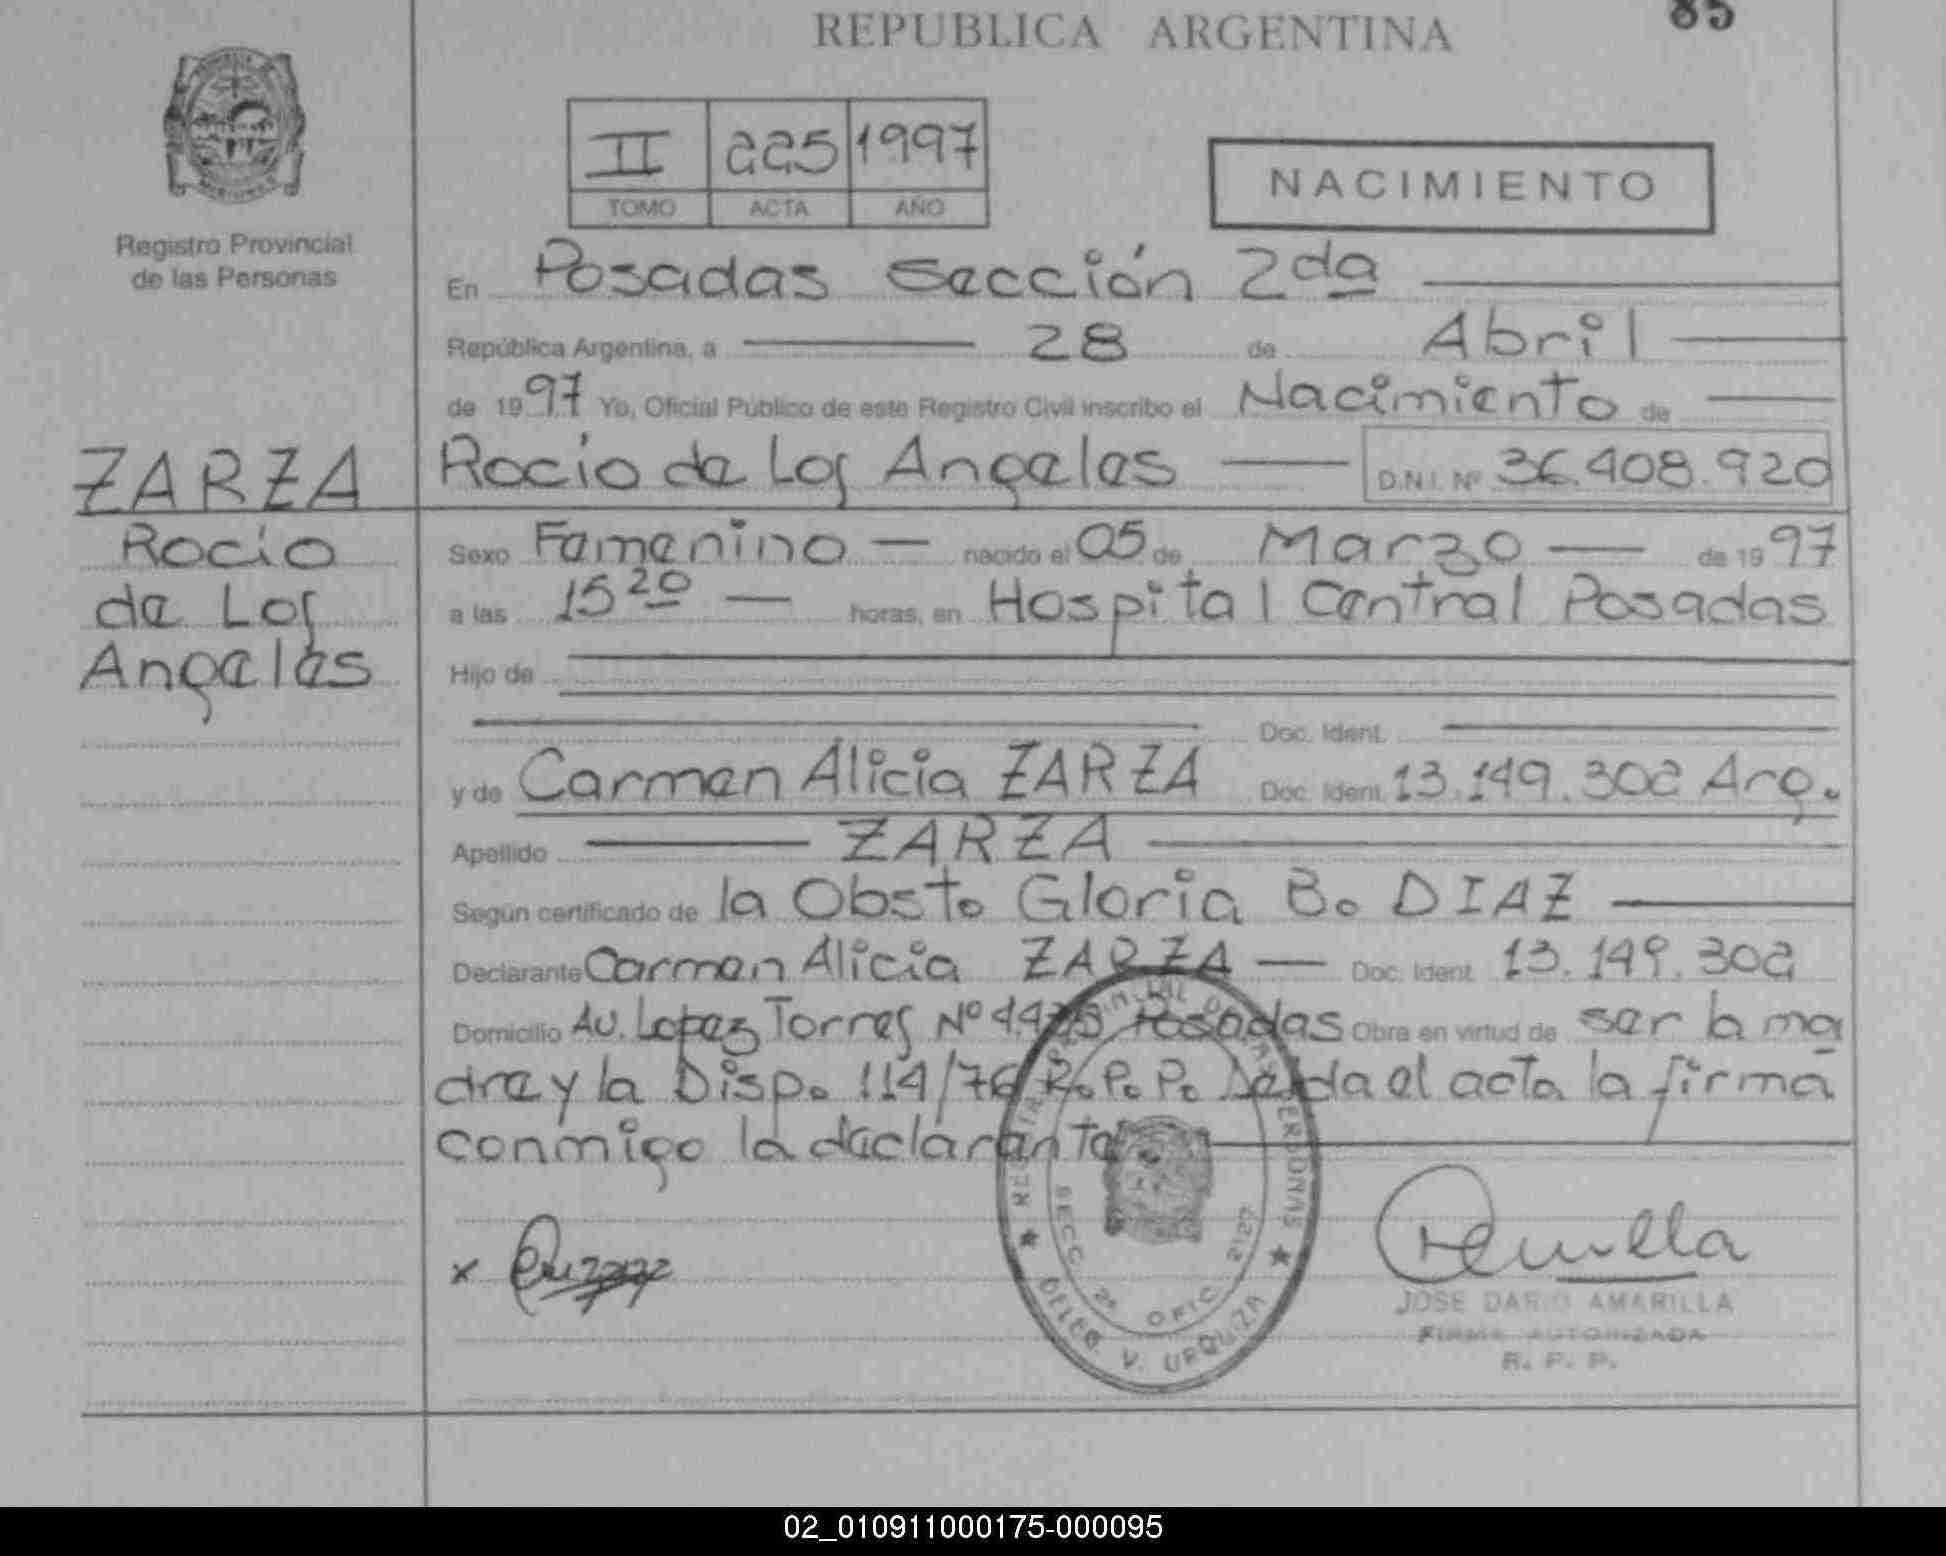 REPUBLICA ARGENTINA
85
II 225 1997
TOMO ACTA AÑO
NACIMIENTO
Registro Provincial
de las Personas
En Posadas sección 2da
República Argentina, a 28 de Abril
de 1997 Yo, Oficial Público de este Registro Civil inscribo el Nacimiento de
ZARZA
Rocio de Los Angeles D.N.I. Nº 36.408.920
Rocio
de Los
Angeles
Sexo Femenino nacido el 05 de Marzo de 1997
a las 15 20 horas, en Hospital Central Posadas
Hijo de
Doc. Ident.
y de Carmen Alicia ZARZA Doc. Ident. 13.149.302 Arg.
Apellido ZARZA
Según certificado de la Obst. Gloria B. DIAZ
Declarante Carmen Alicia ZARZA Doc. Ident. 13.149.302
Domicilio Av. Lopez Torres Nº Posadas Obra en virtud de ser la ma
dre y la Disp. 114/76 R.P.P. Leida el acta la firma
conmigo la declarante
REGISTRO PROVINCIAL DE LAS PERSONAS
SECC 2ª OFIC 2127
DELEG V. URQUIZA
x
JOSE DARIO AMARILLA
FIRMA AUTORIZADA
R. P. P.
02_010911000175-000095